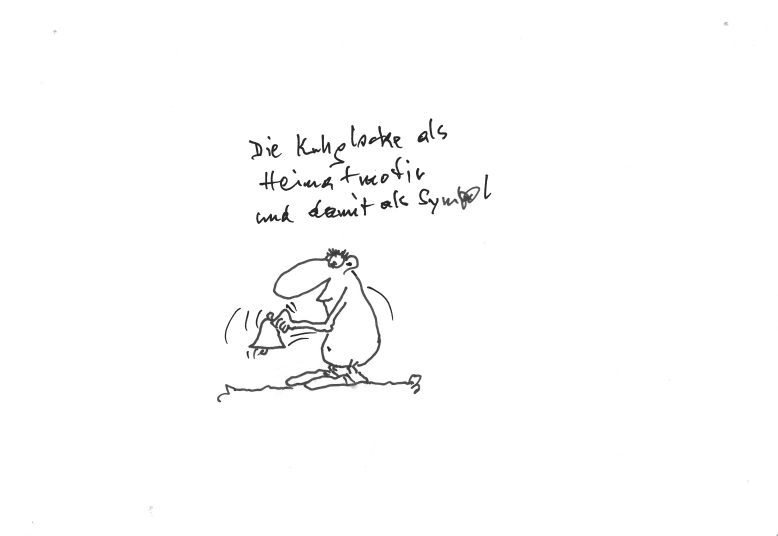 Die Kuhglocke als
Heimatmotiv
und damit als Symbol